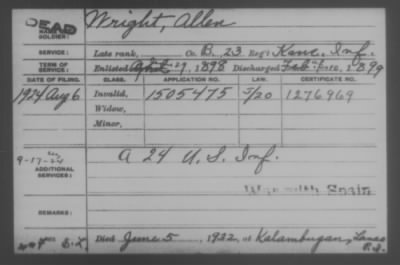 DEAD
NAME OF SOLDIER: Wright, Allen
SERVICE: Late rank, Co. B, 23 Reg't Kans. Inf.
TERM OF SERVICE: Enlisted 1898 Discharged 1899
DATE OF FILING. CLASS. APPLICATION NO. LAW. CERTIFICATE NO.
1924 Aug 6 Invalid, 1505475 5/20 1276969
Widow,
Minor,
9-17-24
ADDITIONAL SERVICES: A 24 U.S. Inf.
War with Spain
REMARKS:
Died June 5, 1932, at Kalambugan, Lanao P.I.